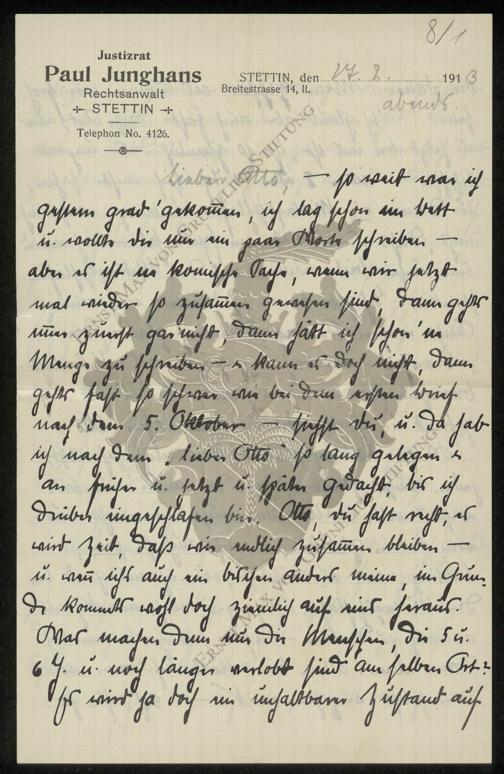 8/1
Justizrat
Paul Junghans
Rechtsanwalt
STETTIN
Telephon No. 4126.
STETTIN, den 17. 2. 1913
Breitestrasse 14, II.
abends.
Lieber Otto, – so weit war ich
gestern grad' gekommen, ich lag schon im Bett
u. wollte dir nur ein paar Worte schreiben –
aber es ist ne komische Sache, wenn wir jetzt
mal wieder so zusammen gewesen sind, dann gehts
immer zuerst gar nicht, dann hätt ich schon 'ne
Menge zu schreiben – u kann es doch nicht, dann
gehts fast so schwer wie bei dem ersten Brief
nach dem 5. Oktober – siehst du, u. da hab
ich nach dem „lieber Otto“ so lang gelegen u
an früher u. jetzt u. später gedacht, bis ich
drüber eingeschlafen bin. Otto, du hast recht, es
wird Zeit, daß wir endlich zusammen bleiben –
u. wenn ichs auch ein bischen anders meine, im Grun-
de kommts wohl doch ziemlich auf eins heraus.
Was machen denn nur die Menschen, die 5 u.
6 J. u. noch länger verlobt sind am selben Ort?
Es wird ja doch ein unhaltbarer Zustand auf